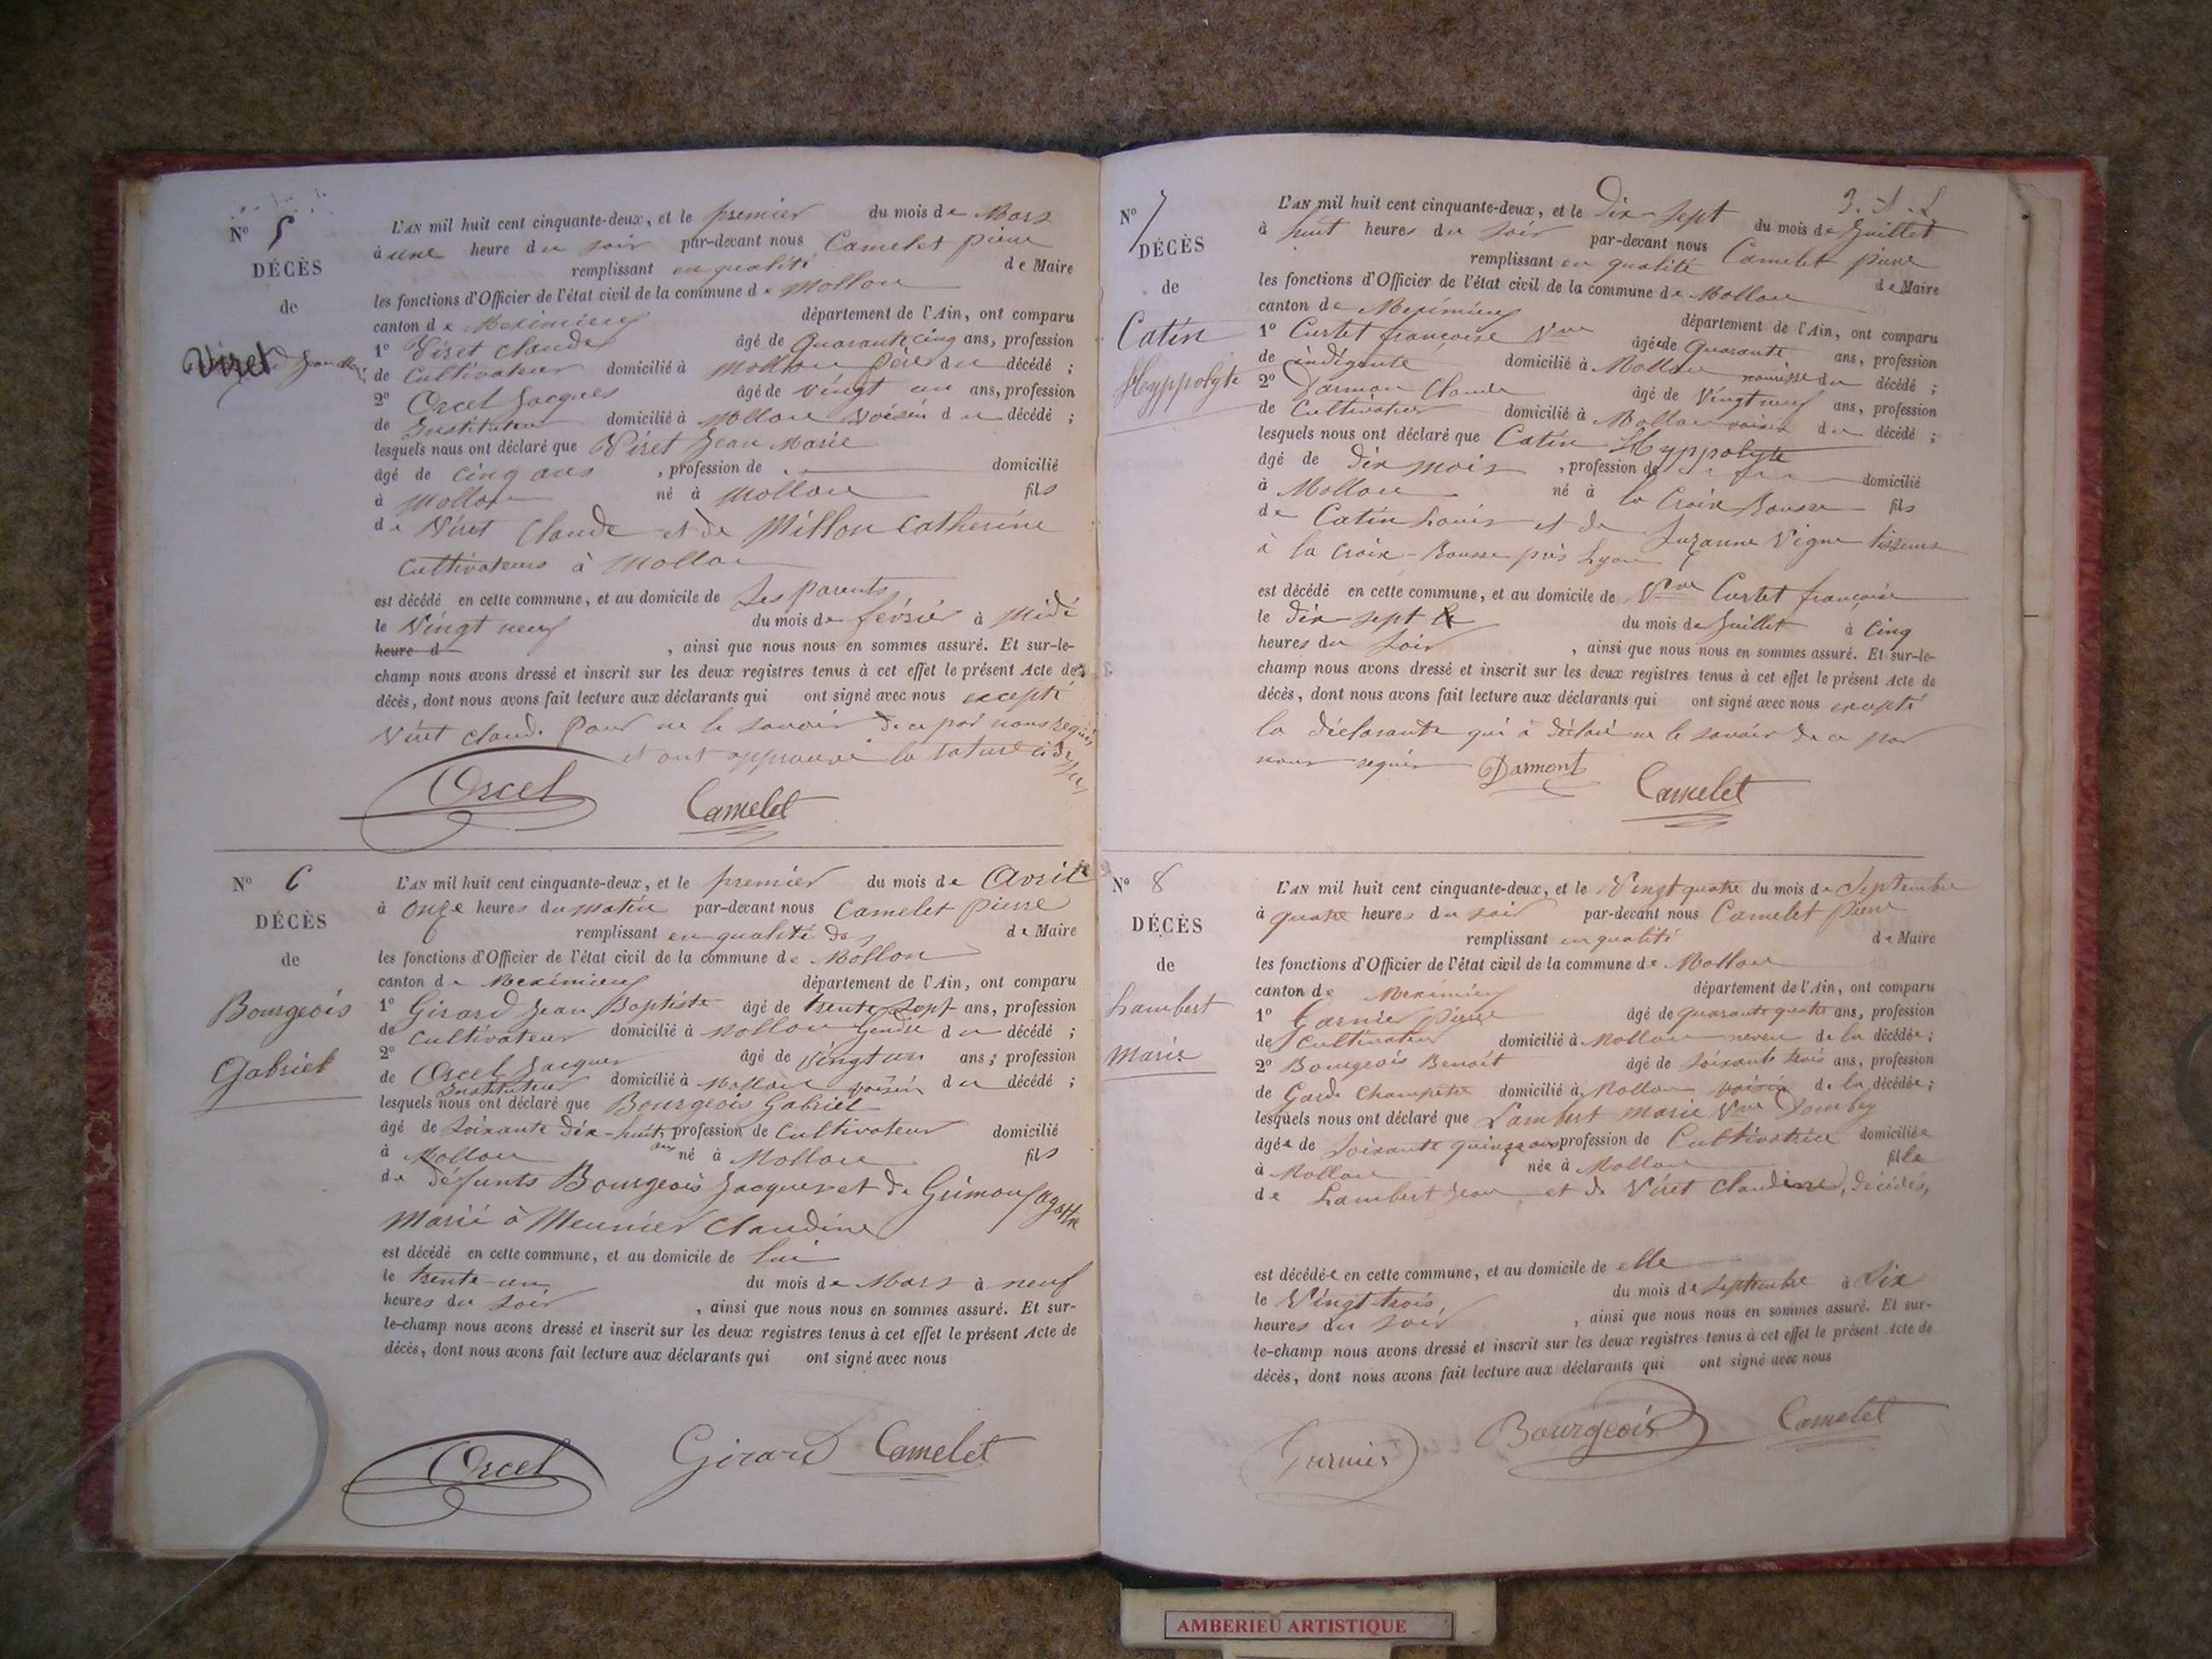 N° 5
DÉCÈS
de
Viret Jean Marie
L'AN mil huit cent cinquante-deux, et le premier du mois de Mars
à une heure du soir par-devant nous Camelet pierre
remplissant en qualité de Maire
les fonctions d'Officier de l'état civil de la commune de Mollon
canton de Meximieux département de l'Ain, ont comparu
1° Viret Claude âgé de quarante cinq ans, profession
de Cultivateur domicilié à Mollon père du décédé ;
2° Orcel Jacques âgé de vingt un ans, profession
de Instituteur domicilié à Mollon voisin du décédé ;
lesquels nous ont déclaré que Viret Jean Marie
âgé de cinq ans , profession de domicilié
à Mollon né à Mollon fils
de Viret Claude et de Millon Catherine
Cultivateurs à Mollon
est décédé en cette commune, et au domicile de ses parents
le Vingt neuf du mois de février à Midi
heure d , ainsi que nous nous en sommes assuré. Et sur-le-
champ nous avons dressé et inscrit sur les deux registres tenus à cet effet le présent Acte de
décès, dont nous avons fait lecture aux déclarants qui ont signé avec nous excepté
Viret Claude pour ne le savoir de ce par nous requis
et ont approuvé la rature ci dessus
Orcel Camelet
N° 6
DÉCÈS
de
Bourgeois
Gabriel
L'AN mil huit cent cinquante-deux, et le premier du mois de Avril
à onze heures du matin par-devant nous Camelet pierre
remplissant en qualité de de Maire
les fonctions d'Officier de l'état civil de la commune de Mollon
canton de Meximieux département de l'Ain, ont comparu
1° Girard Jean Baptiste âgé de trente sept ans, profession
de Cultivateur domicilié à Mollon Gendre du décédé ;
2° Orcel Jacques âgé de vingt un ans ; profession
de Instituteur domicilié à Mollon voisin du décédé ;
lesquels nous ont déclaré que Bourgeois Gabriel
âgé de soixante dix-huit ans, profession de Cultivateur domicilié
à Mollon né à Mollon fils
de défunts Bourgeois Jacques et de Grimouf agathe
marié à Meunier Claudine
est décédé en cette commune, et au domicile de lui
le trente-un du mois de Mars à neuf
heures du soir , ainsi que nous nous en sommes assuré. Et sur-
le-champ nous avons dressé et inscrit sur les deux registres tenus à cet effet le présent Acte de
décès, dont nous avons fait lecture aux déclarants qui ont signé avec nous
Orcel Girard Camelet
N° 7
DÉCÈS
de
Catin
Hyppolyte
L'AN mil huit cent cinquante-deux, et le Dix-sept du mois de Juillet
à huit heures du soir par-devant nous Camelet pierre
remplissant en qualité de Maire
les fonctions d'Officier de l'état civil de la commune de Mollon
canton de Meximieux département de l'Ain, ont comparu
1° Curtet françoise Vve âgée de Quarante ans, profession
de indigente domicilié à Mollon nourisse du décédé ;
2° Darmon Claude âgé de Vingt neuf ans, profession
de Cultivateur domicilié à Mollon voisin du décédé ;
lesquels nous ont déclaré que Catin Hyppolyte
âgé de dix mois , profession de domicilié
à Mollon né à la Croix Rousse fils
de Catin Louis et de Suzanne Vigne tisseurs
à la Croix-Rousse près Lyon
est décédé en cette commune, et au domicile de Vve Curtet françoise
le Dix-sept du mois de Juillet à cinq
heures du soir , ainsi que nous nous en sommes assuré. Et sur-le-
champ nous avons dressé et inscrit sur les deux registres tenus à cet effet le présent Acte de
décès, dont nous avons fait lecture aux déclarants qui ont signé avec nous excepté
la déclarante qui à déclaré ne le savoir de ce par
nous requis Darmont Camelet
N° 8
DÉCÈS
de
Lambert
Marie
L'AN mil huit cent cinquante-deux, et le Vingt quatre du mois de Septembre
à quatre heures du soir par-devant nous Camelet pierre
remplissant en qualité de Maire
les fonctions d'Officier de l'état civil de la commune de Mollon
canton de Meximieux département de l'Ain, ont comparu
1° Garnier pierre âgé de quarante quatre ans, profession
de Cultivateur domicilié à Mollon neveu de la décédée ;
2° Bourgeois Benoit âgé de soixante trois ans, profession
de Garde Champetre domicilié à Mollon voisin de la décédée ;
lesquels nous ont déclaré que Lambert Marie Vve Dombey
âgée de soixante quinze ans profession de Cultivatrice domiciliée
à Mollon née à Mollon fille
de Lambert Jean et de Viret Claudine, décédés,
est décédée en cette commune, et au domicile de elle
le Vingt-trois, du mois de Septembre à Six
heures du soir , ainsi que nous nous en sommes assuré. Et sur-
le-champ nous avons dressé et inscrit sur les deux registres tenus à cet effet le présent Acte de
décès, dont nous avons fait lecture aux déclarants qui ont signé avec nous
Garnier Bourgeois Camelet
AMBERIEU ARTISTIQUE